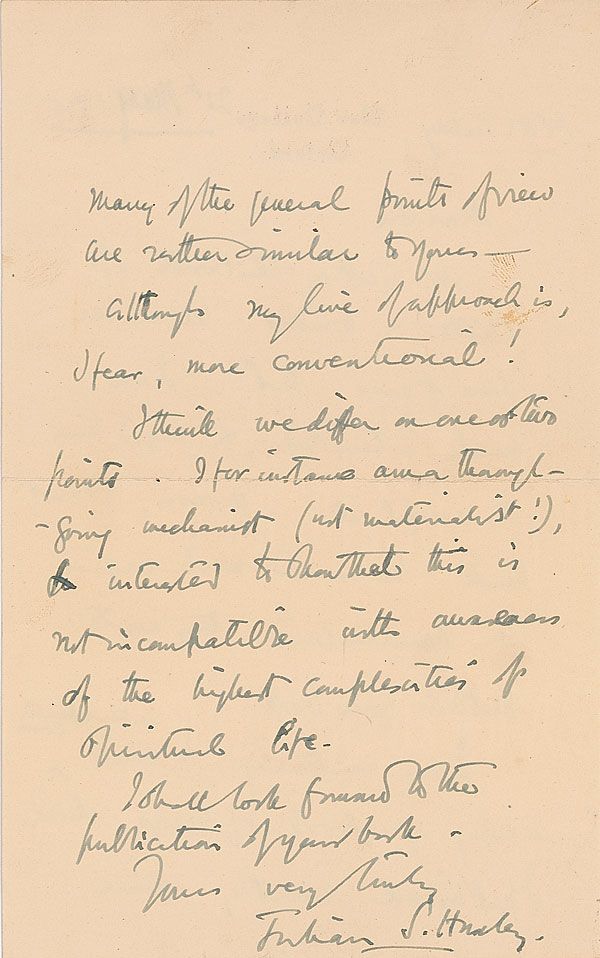 many of the general points of view
are rather similar to yours —
although my line of approach is,
I fear, more conventional!
I think we differ on one or two
points. I for instance am a thorough-
-going mechanist (not materialist!),
& interested to show that this is
not incompatible with awareness
of the highest complexities of
spiritual life.
I shall look forward to the
publication of your book.
Yours very truly
Julian S. Huxley.